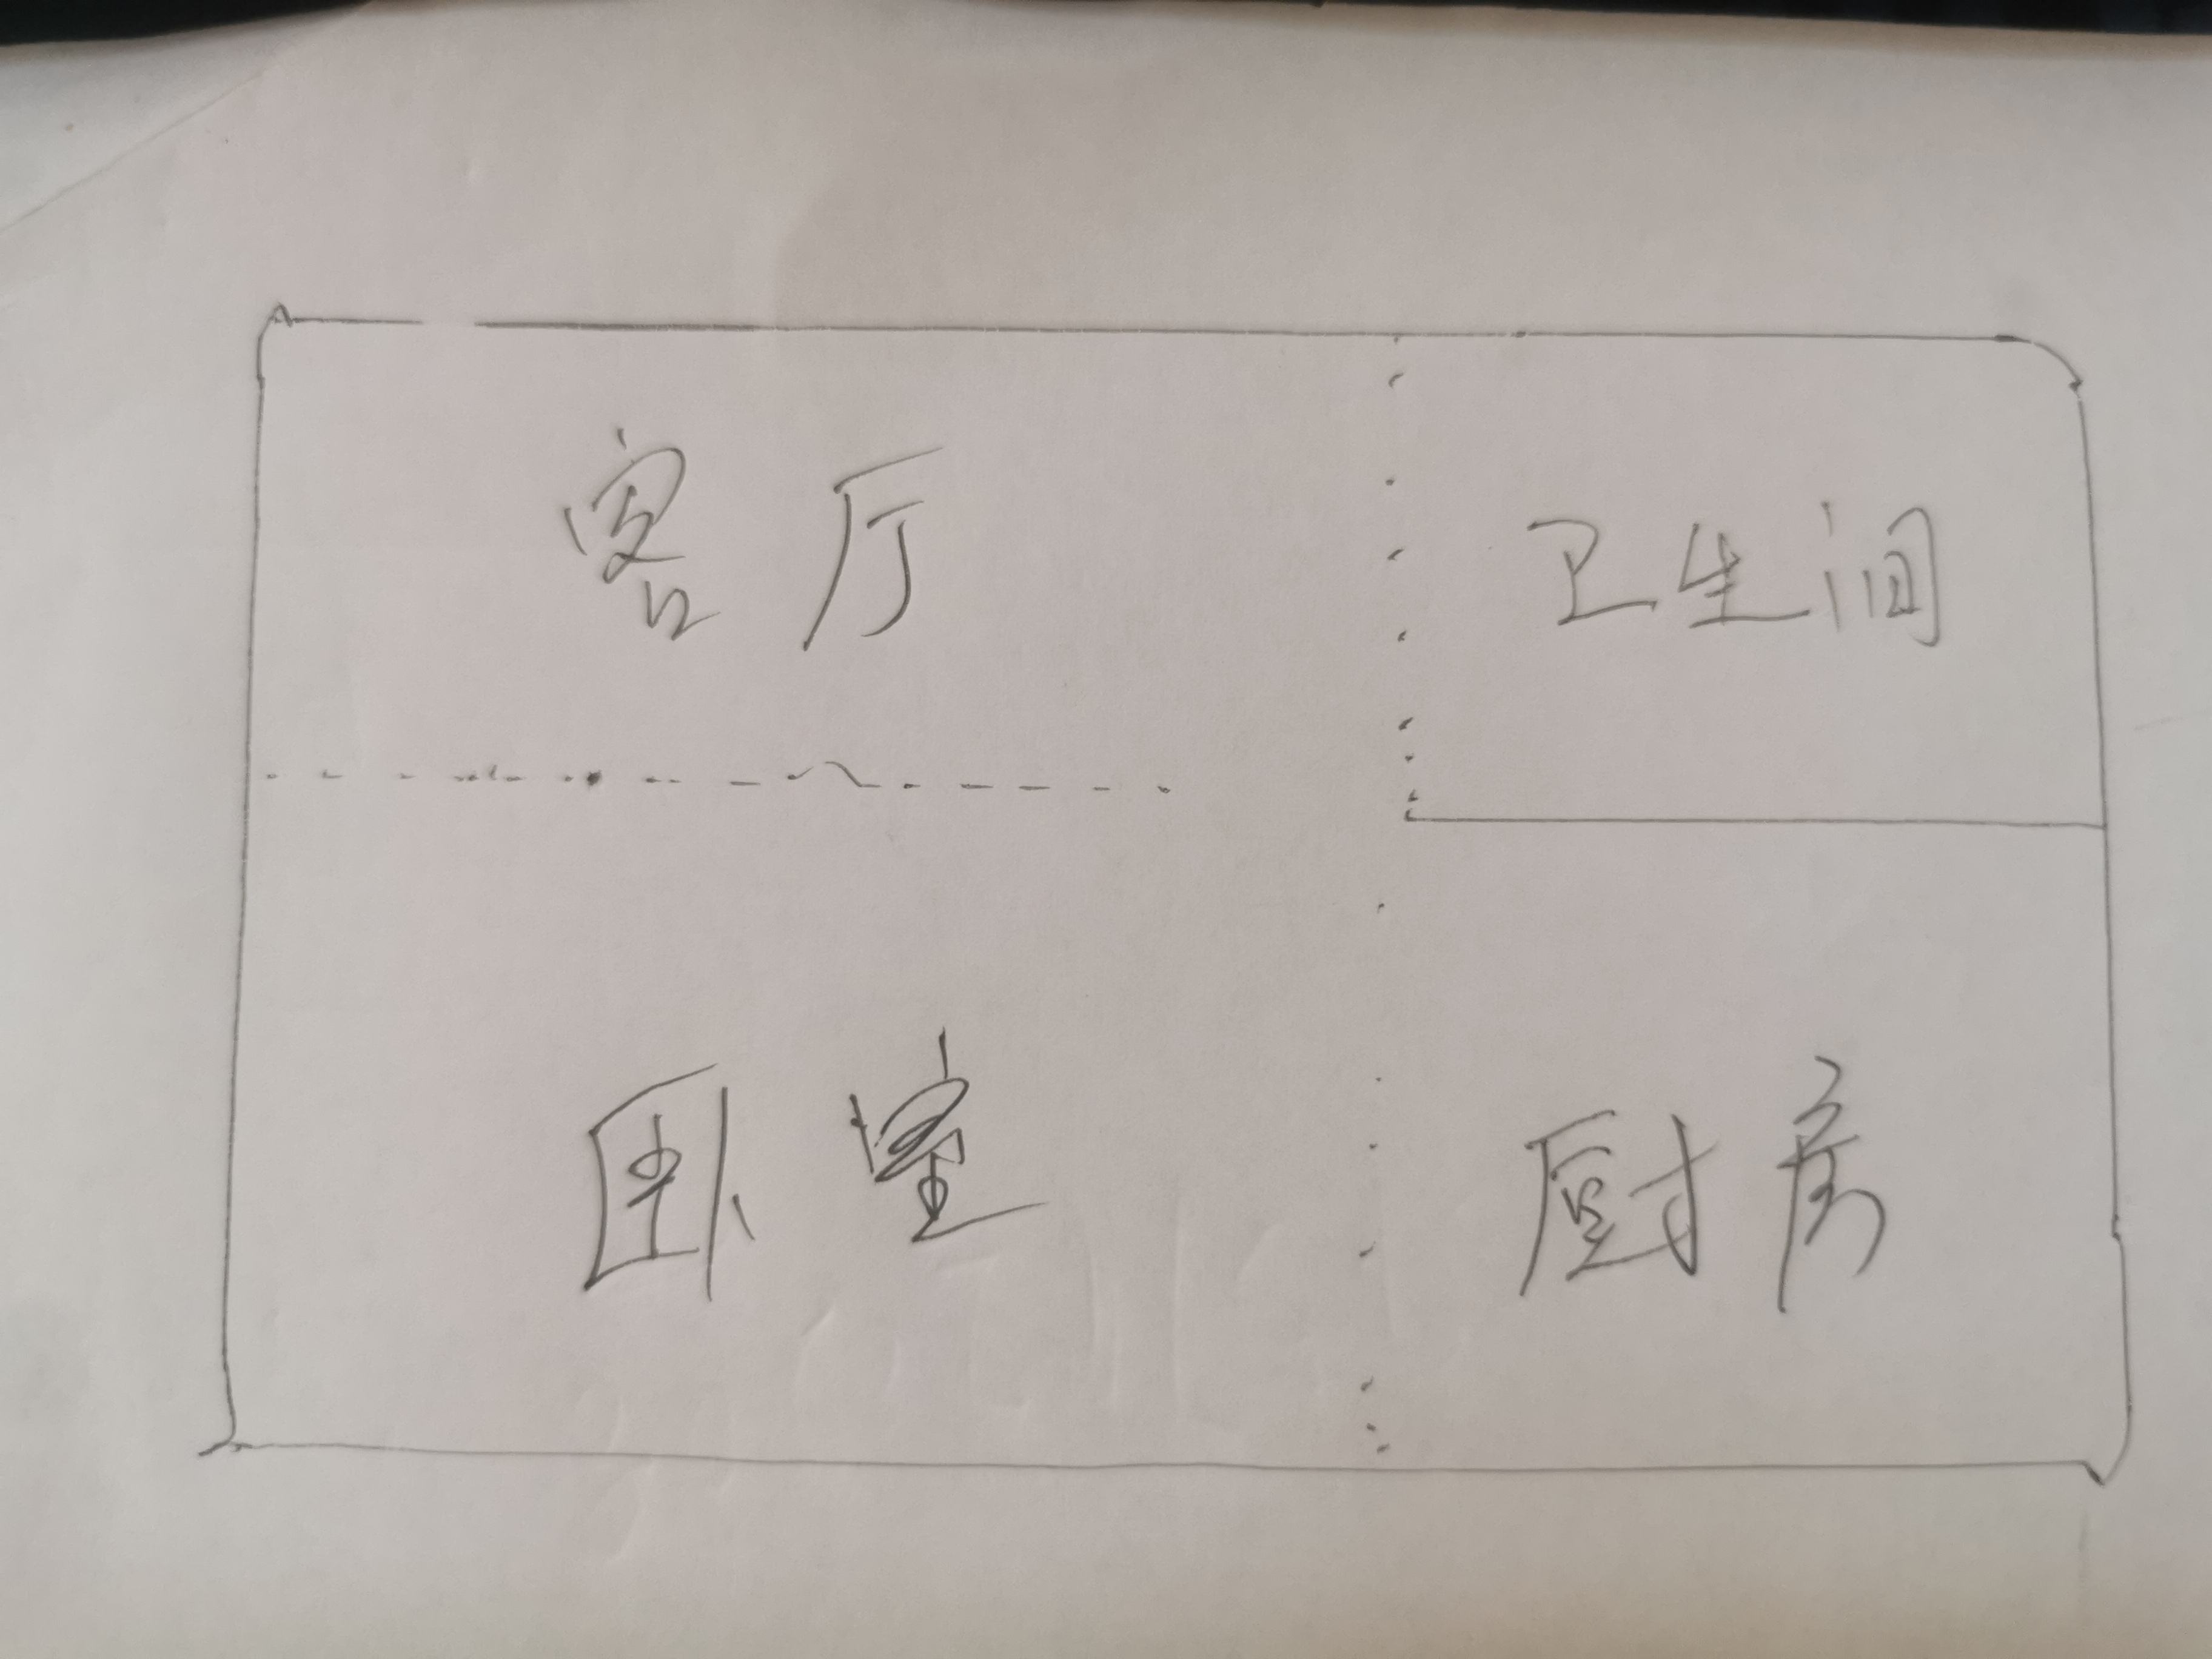 客厅
卫生间
卧室
厨房